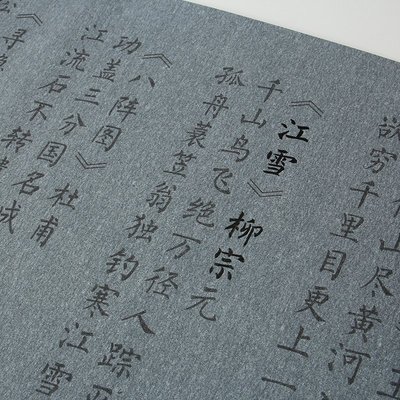 王
山尽黄河
欲穷千里目更上一
《江雪》柳宗元
千山鸟飞绝万径人踪
孤舟蓑笠翁独钓寒江雪
《八阵图》杜甫
功盖三分国名成
江流石不转
《寻
松